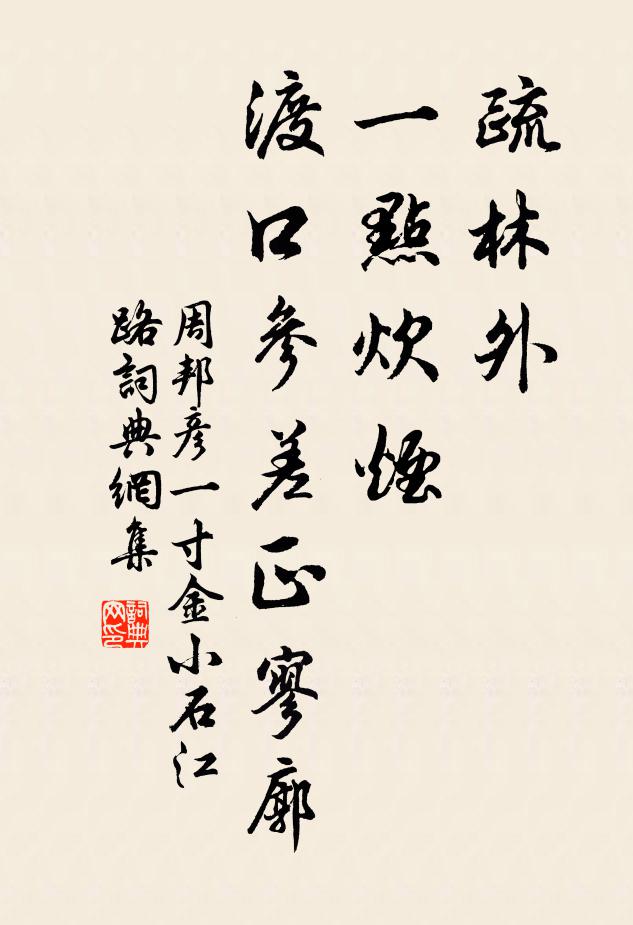 疏林外
一點炊煙
渡口參差正寥廓
周邦彥一寸金小石江
路詞典網集
詞典
网印